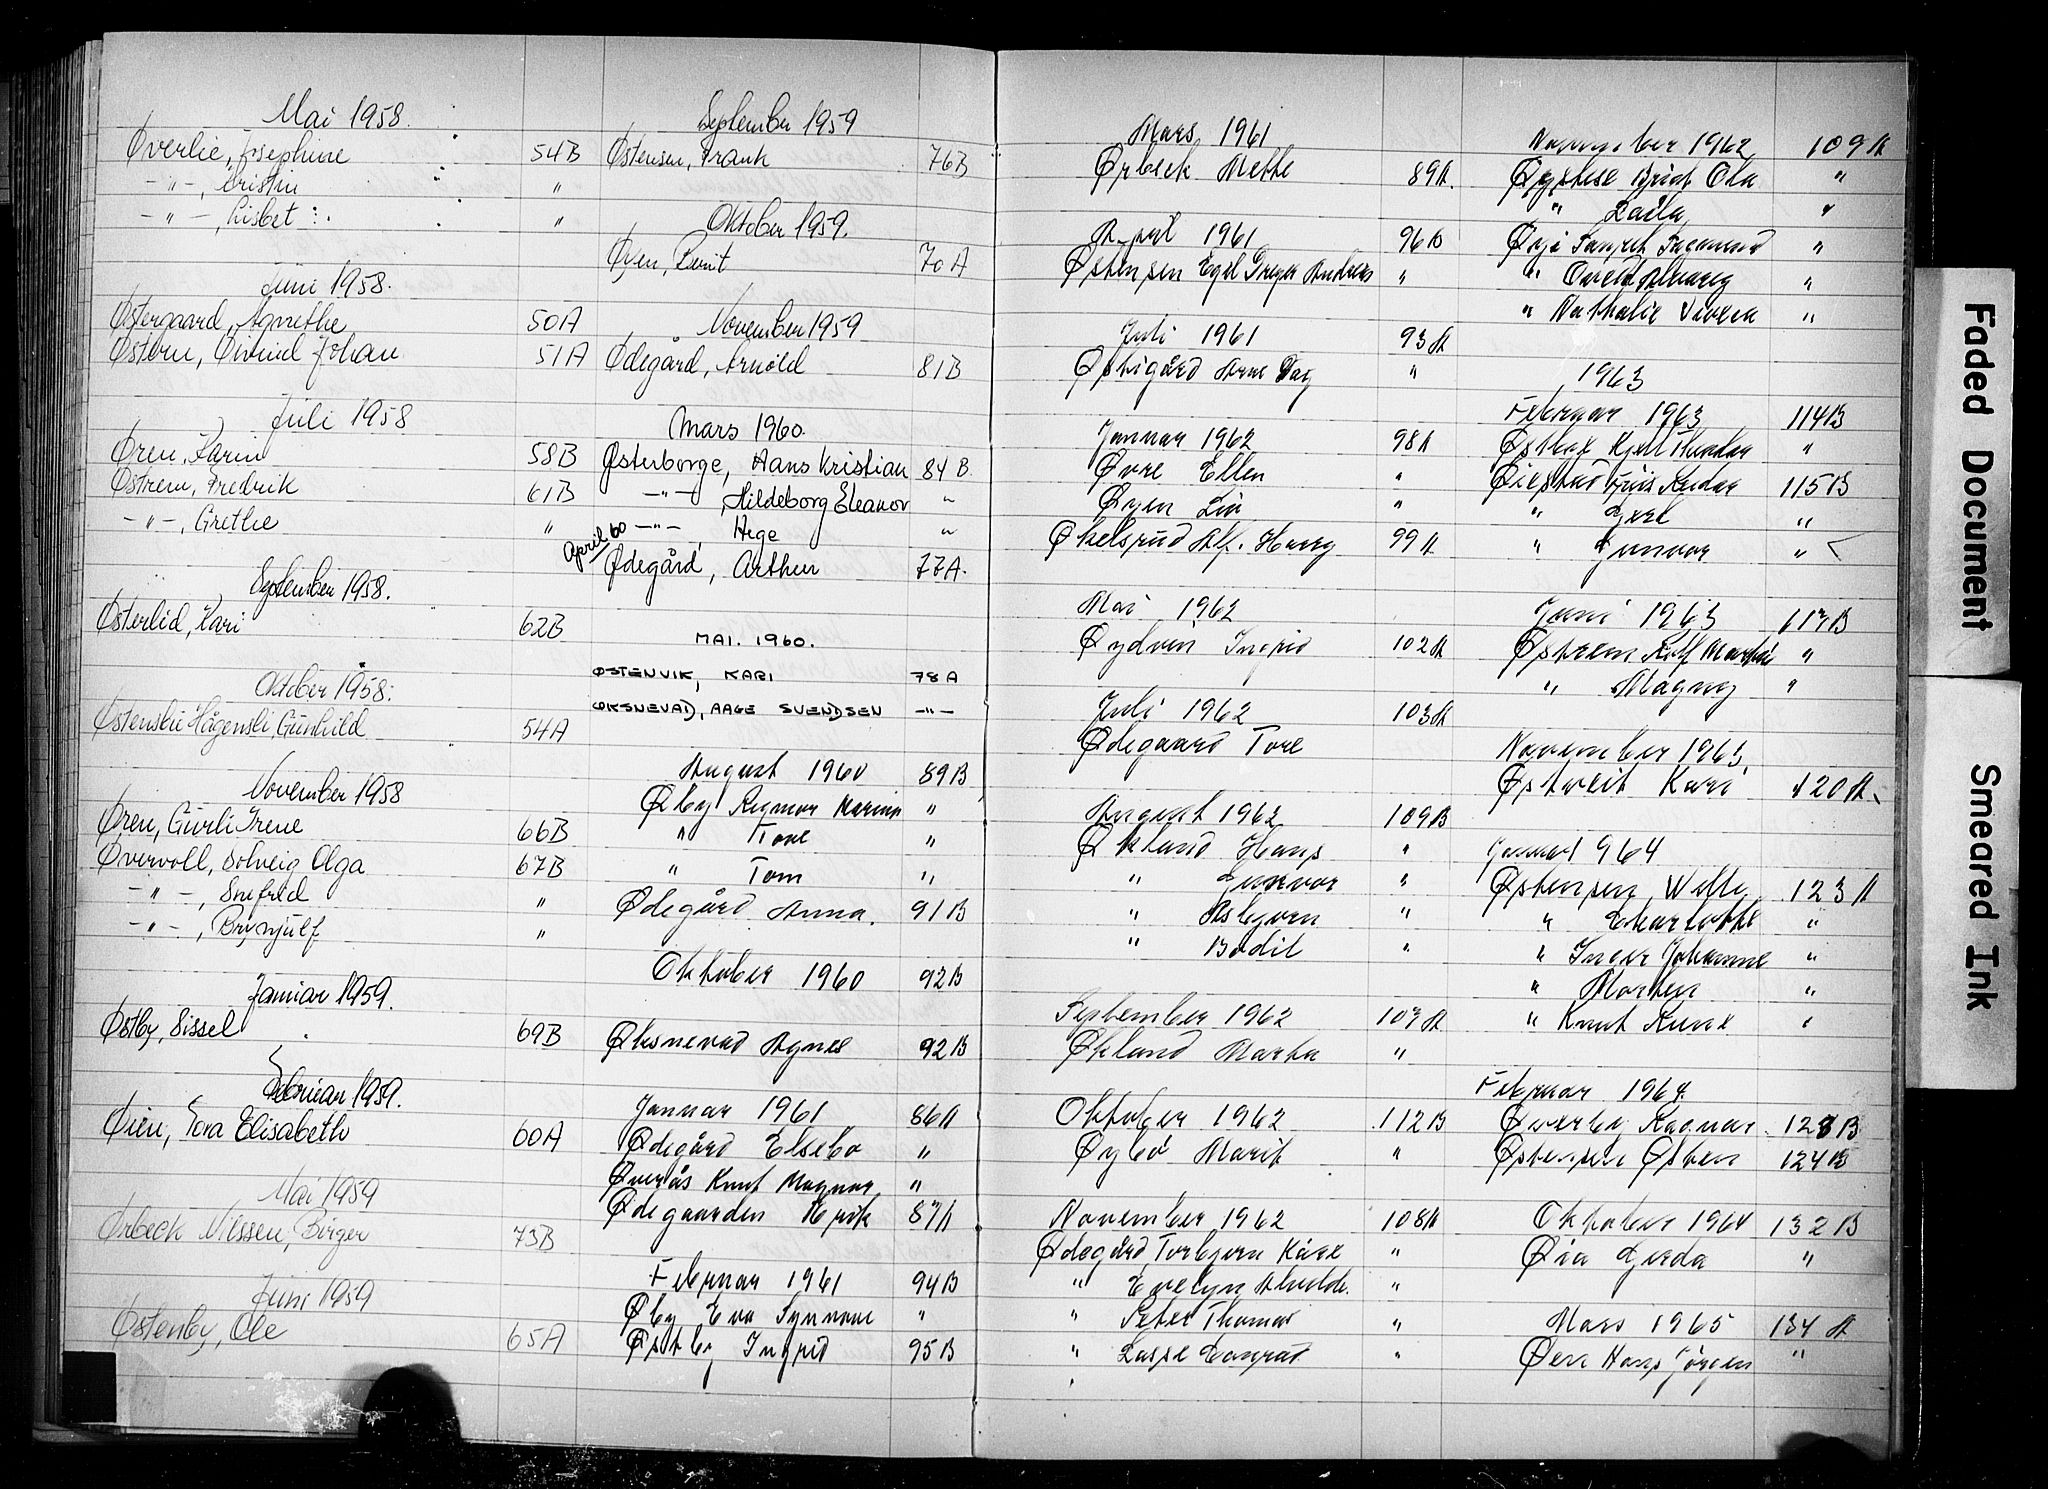 Mai 1958.
Øverlie, Josephine 54B
-"-, Kristin "
-"-, Lisbet "
Juni 1958.
Østergaard, Agnethe 50A
Østern, Øivind Johan 51A
Juli 1958
Øren, Karin 58B
Østrem, Fredrik 61B
-"-, Grethe "
September 1958.
Østerlid, Kari 62B
Oktober 1958.
Østenslie Hågensli, Gunhild 54A
November 1958
Øren, Gurli Irene 66B
Øvervoll, Solveig Olga 67B
-"-, Snefrid "
-"-, Brynjulf "
Januar 1959.
Østby, Sissel 69B
Februar 1959.
Øien, Tora Elisabeth 60A
Mai 1959
Ørbeck Nilssen, Birger 73B
Juni 1959
Østenby, Ole 65A
September 1959
Østensen, Frank 76B
Oktober 1959.
Øyen, Berit 70A
November 1959
Ødegård, Arnold 81B
Mars 1960.
Østerborge, Hans Kristian 84B
-"-, Hildeborg Eleanor "
-"-, Hege "
April 60
Ødegård, Arthur 77A.
MAI. 1960.
ØSTENVIK, KARI 78A
ØKSNEVAD, AAGE SVENDSEN -"-
August 1960 89B
Øby Reymar Marius "
" Tove "
" Tom "
Ødegård Anna. 91B
Oktober 1960 92B
Øksnevad Agnes 92B
Januar 1961 86A
Ødegård Elsebo "
Øverås Knut Magnar "
Ødegaarden Erik 87A
Februar 1961 94B
Øby Eva Synnøve "
Østby Ingrid 95B
Mars 1961
Ørbeck Mette 89A.
April 1961 96B
Østensen Egil Dreyer Andreas "
Juli 1961 93A
Østigård Arne Dag "
Januar 1962 98A
Øvre Ellen "
Øyen Liv "
Økelsrud Alf. Harry 99A
Mai 1962
Øydvin Ingrid 102A
Juli 1962 103A
Ødegaard Tore
August 1962 109B
Økland Hans "
" Gunvor "
" Asbjørn "
" Bodil "
September 1962 107A
Økland Marta "
Oktober 1962 112B
Øybö Marit "
November 1962 108A
Ødegård Torbjørn Kåre "
" Evelyn Alvilde. "
" Peter Thomas "
" Lasse Conrad "
November 1962 109A
Øystese Brigt Ola "
" Laila "
Øye "
" "
" Nathalie Vivera "
1963
Februar 1963 114B
Østbye Kjell "
Øiestad 115B
" "
" Gunvor "
Juni 1963 117B
Østrem Rolf Martin "
" Magny "
November 1963
Østveit Kari 120A
Januar 1964
Østensen Wette 123A
" Charlotte "
" Inger Johanne "
" Morten "
" Knut Rune "
Februar 1964.
Øverby Ragnar 128B
Østensen Østen 124B
Oktober 1964 132B
Øia Gerda "
Mars 1965 134A
Øen Hans Jørgen "
Faded Document
Smeared Ink